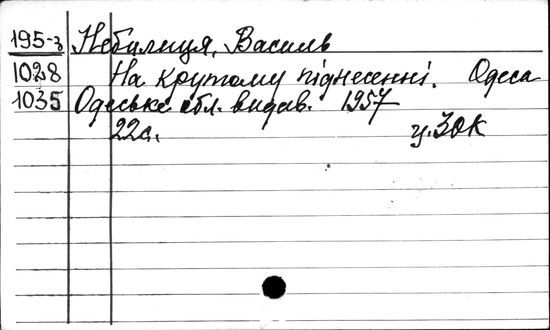 195-з Небилиця, Василь
1028 На крутому піднесенні. Одеса
1035 Одеське обл. видав. 1957
22с. ц. 30к